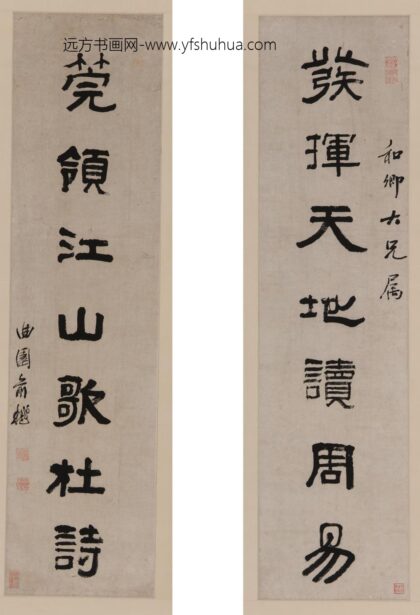 远方书画网-www.yfshuhua.com
和卿大兄属
發揮天地讀周易
莞領江山歌杜詩
曲園俞樾